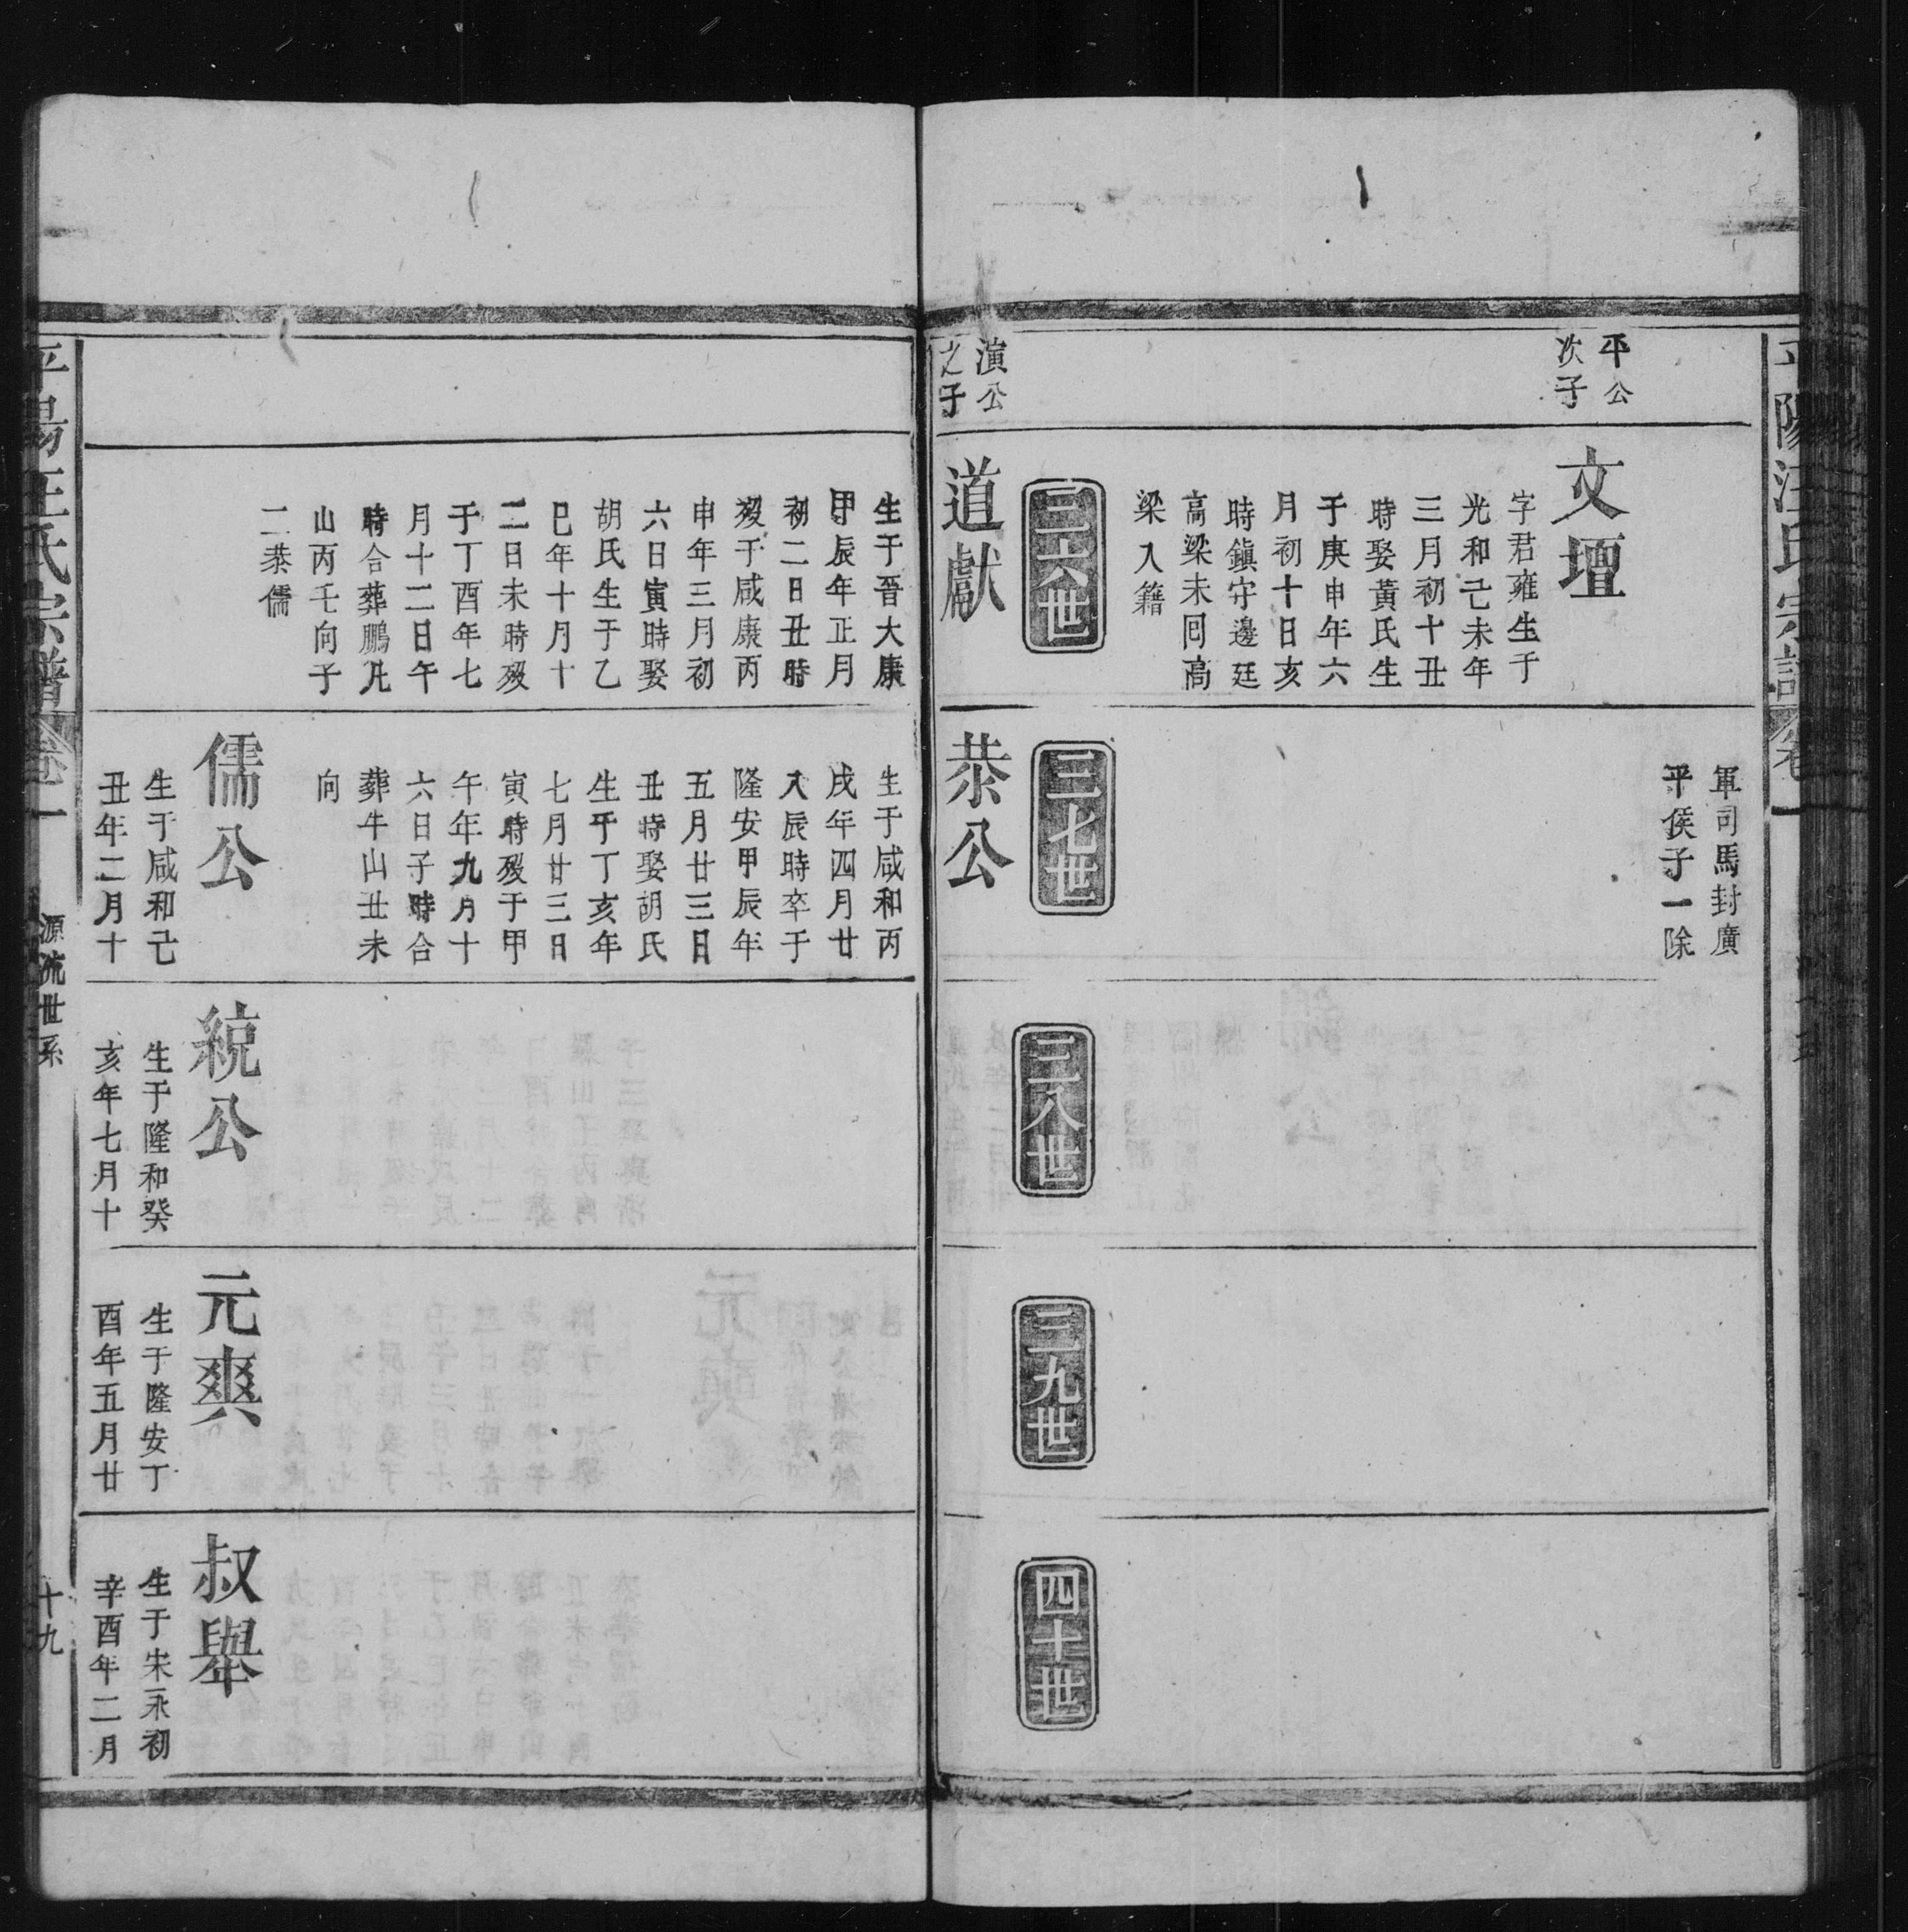 平陽汪氏宗譜
卷一
平公
次子
文壇
字君雍生于
光和己未年
三月初十丑
時娶黃氏生
于庚申年六
月初十日亥
時鎮守邊廷
高梁未囘高
梁入籍
軍司馬封廣
平侯子一除
三六世
三七世
三八世
三九世
四十世
演公
之子
道獻
生于晉大康
甲辰年正月
初二日丑時
歿于咸康丙
申年三月初
六日寅時娶
胡氏生于乙
巳年十月十
二日未時歿
于丁酉年七
月十二日午
時合葬鵬凡
山丙壬向子
二恭儒
恭公
生于咸和丙
戌年四月廿
八辰時卒于
隆安甲辰年
五月廿三日
丑時娶胡氏
生于丁亥年
七月廿三日
寅時歿于甲
午年九月十
六日子時合
葬牛山丑未
向
儒公
生于咸和己
丑年二月十
統公
生于隆和癸
亥年七月十
元爽
生于隆安丁
酉年五月廿
叔舉
生于宋永初
辛酉年二月
平陽汪氏宗譜
卷一
源流世系
十九